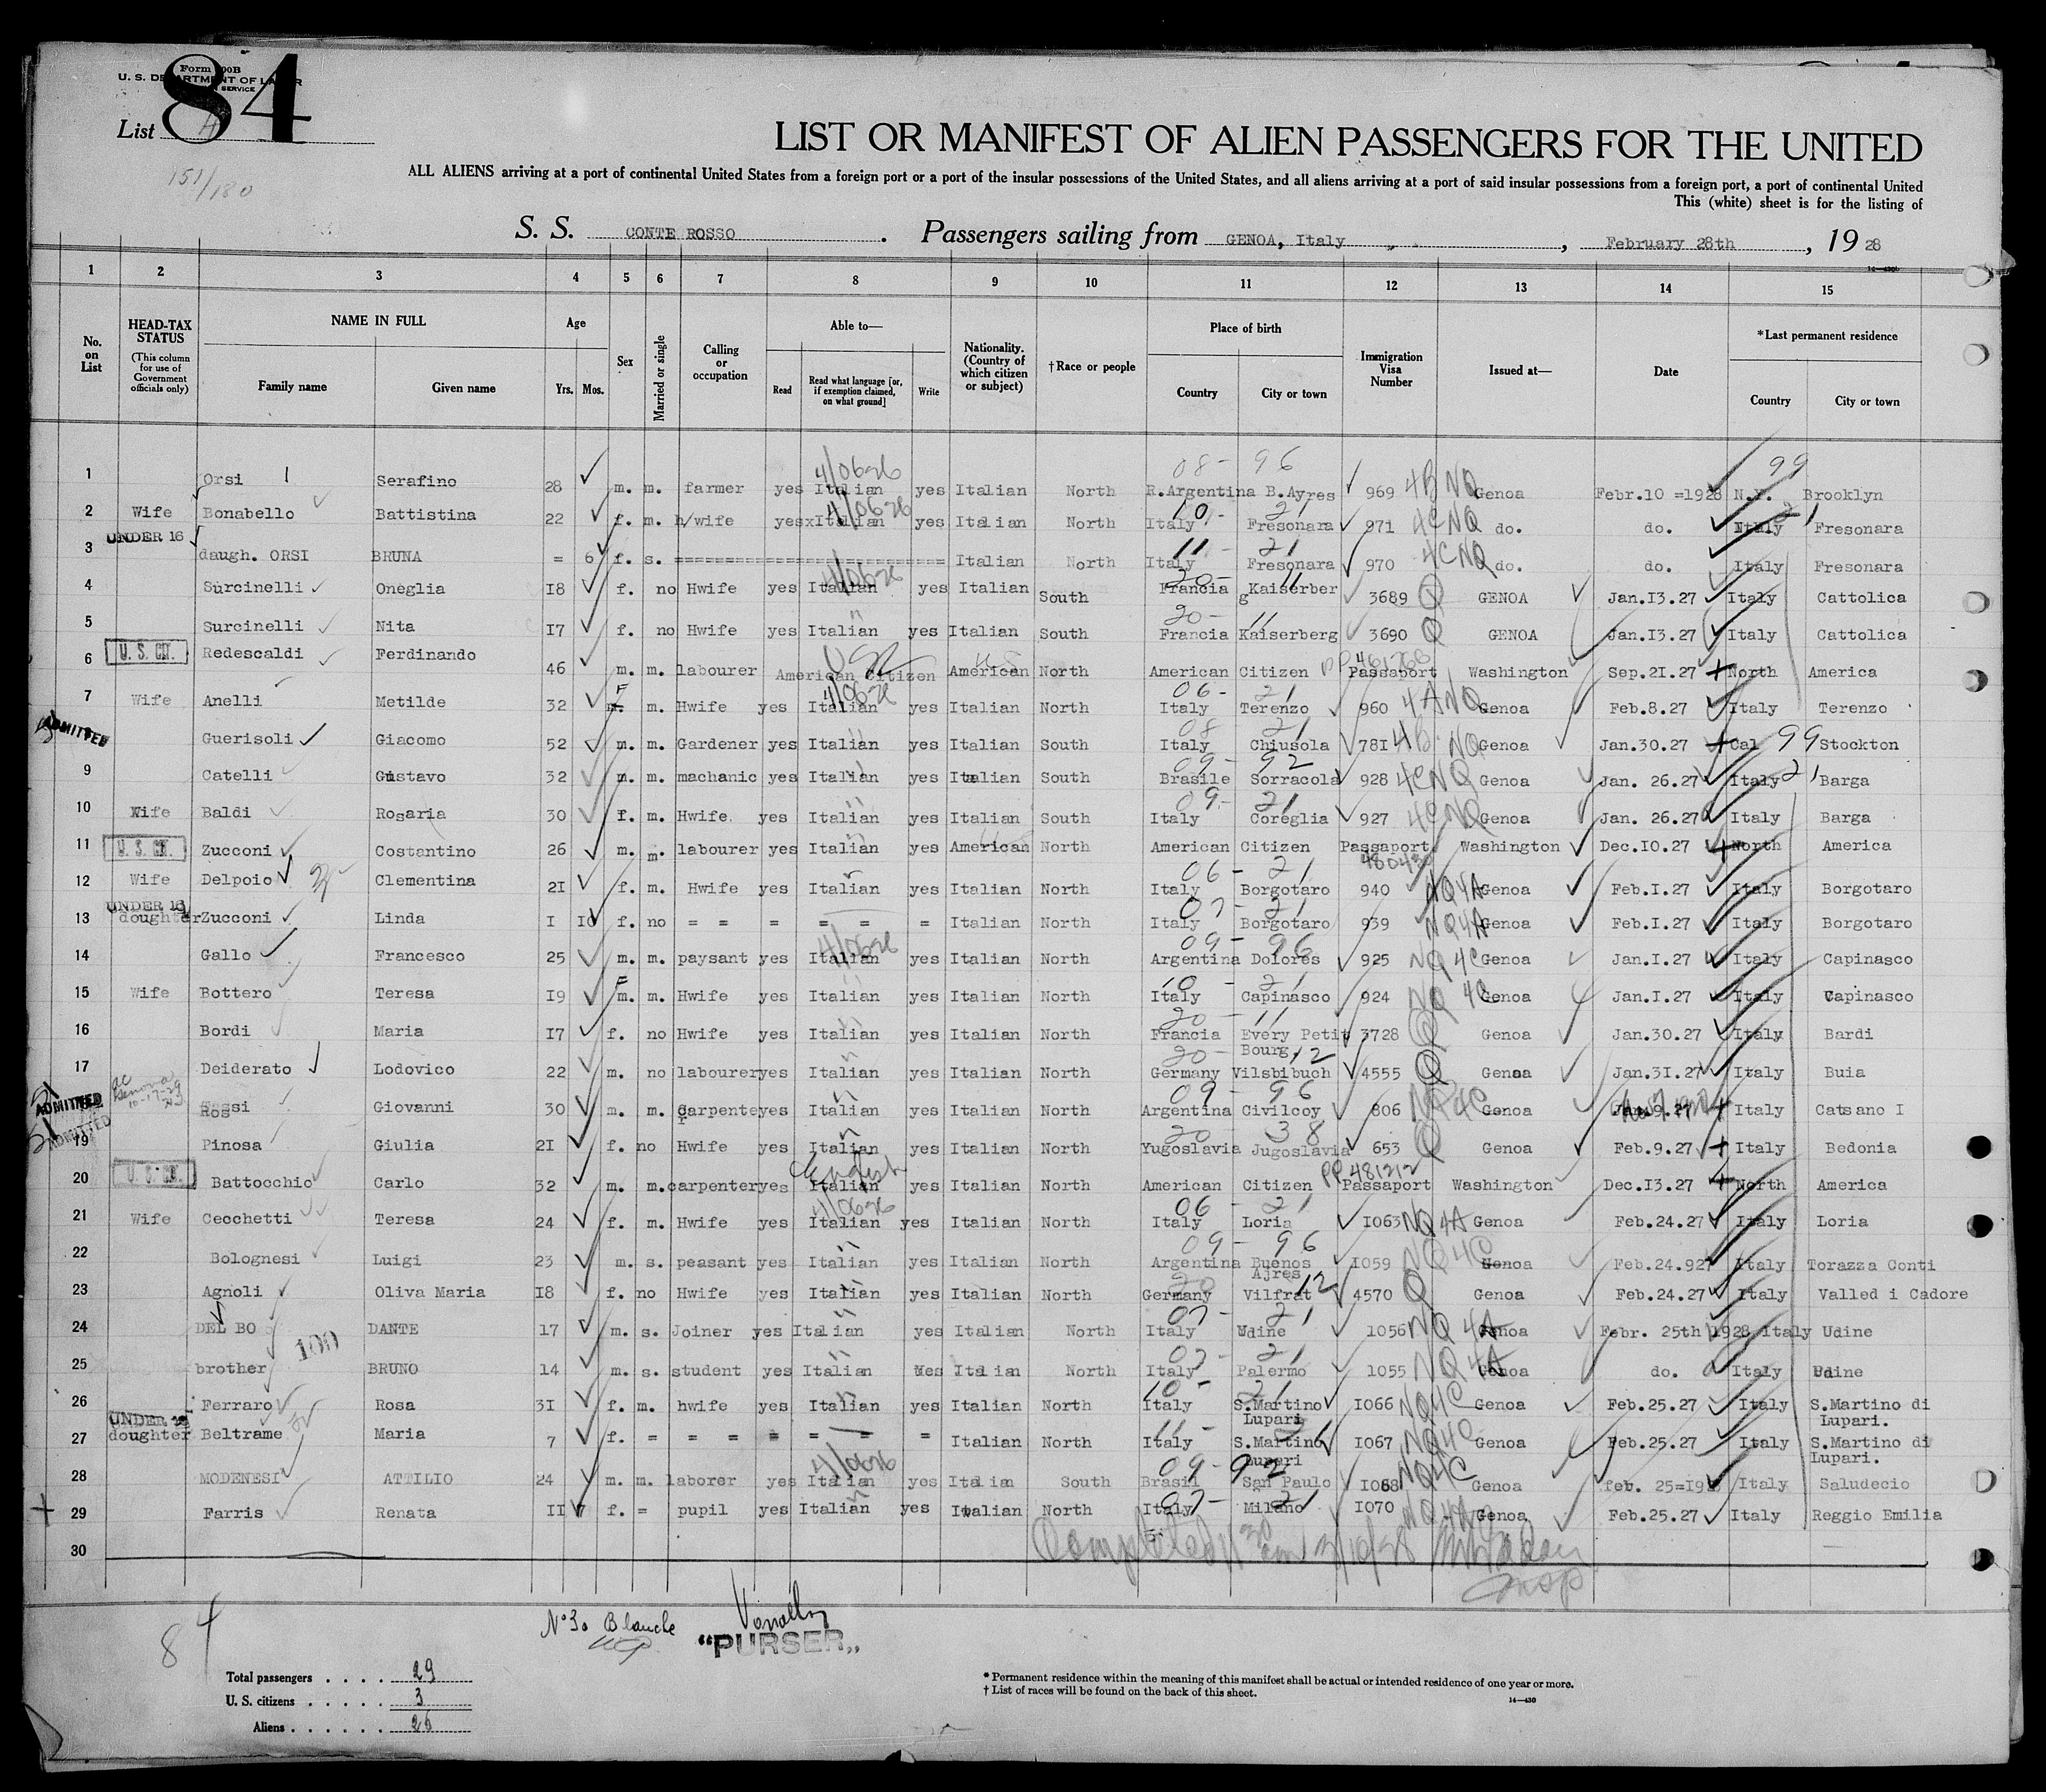 Form 500B
U. S. DEPARTMENT OF LABOR
SERVICE
List 84
151/180
LIST OR MANIFEST OF ALIEN PASSENGERS FOR THE UNITED
ALL ALIENS arriving at a port of continental United States from a foreign port or a port of the insular possessions of the United States, and all aliens arriving at a port of said insular possessions from a foreign port, a port of continental United
This (white) sheet is for the listing of
S. S. CONTE ROSSO . Passengers sailing from GENOA, Italy , February 28th , 19 28
14—430b
1 2 3 4 5 6 7 8 9 10 11 12 13 14 15
No. on List
HEAD-TAX STATUS (This column for use of Government officials only)
NAME IN FULL Family name Given name
Age Yrs. Mos.
Sex
Married or single
Calling or occupation
Able to— Read Read what language [or, if exemption claimed, on what ground] Write
Nationality. (Country of which citizen or subject)
†Race or people
Place of birth Country City or town
Immigration Visa Number
Issued at—
Date
*Last permanent residence Country City or town
1 Orsi Serafino 28 m. m. farmer yes Italian 4/0626 yes Italian North R.Argentina B.Ayres 08- 96 969 4B NQ Genoa Febr.10 =1928 N.Y. 99 Brooklyn
2 Wife Bonabello Battistina 22 f. m. h/wife yes Italian 4/0626 yes Italian North Italy Fresonara 10- 21 971 4C NQ do. do. Italy 21 Fresonara
3 UNDER 16 daugh. ORSI BRUNA = 6 f. s. ======================== Italian North Italy Fresonara 11- 21 970 4C NQ do. do. Italy Fresonara
4 Surcinelli Oneglia 18 f. no Hwife yes Italian 4/0626 yes Italian South Francia Kaiserberg 20- 11 3689 Q GENOA Jan.I3.27 Italy Cattolica
5 Surcinelli Nita 17 f. no Hwife yes Italian " yes Italian South Francia Kaiserberg 20- 11 3690 Q GENOA Jan.I3.27 Italy Cattolica
6 U. S. CIT. Redescaldi Ferdinando 46 m. m. labourer American Citizen American North American Citizen Passaport Washington Sep.2I.27 North America
7 Wife Anelli Metilde 32 F m. Hwife yes Italian 4/0626 yes Italian North Italy Terenzo 06- 21 960 4A NQ Genoa Feb.8.27 Italy Terenzo
ADMITTED Guerisoli Giacomo 52 m. m. Gardener yes Italian " yes Italian South Italy Chiusola 08 21 78I 4B NQ Genoa Jan.30.27 Cal 99 Stockton
9 Catelli Gustavo 32 m. m. machanic yes Italian " yes Italian South Brasile Sorracola 09- 92 928 4C NQ Genoa Jan. 26.27 Italy 21 Barga
10 Wife Baldi Rosaria 30 f. m. Hwife. yes Italian " yes Italian South Italy Coreglia 09- 21 927 4C NQ Genoa Jan. 26.27 Italy Barga
11 U. S. CIT. Zucconi Costantino 26 m. m. labourer yes Italian " yes American North American Citizen Passaport 480430 Washington Dec.IO.27 North America
12 Wife Delpoio Clementina 2I f. m. Hwife yes Italian yes Italian North Italy Borgotaro 06- 21 940 NQ 4A Genoa Feb.I.27 Italy Borgotaro
13 UNDER 16 doughter Zucconi Linda I 10 f. no = = = = = Italian North Italy Borgotaro 07- 21 939 NQ 4A Genoa Feb.I.27 Italy Borgotaro
14 Gallo Francesco 25 m. m. paysant yes Italian 4/0626 yes Italian North Argentina Dolores 09- 96 925 NQ 4C Genoa Jan.I.27 Italy Capinasco
15 Wife Bottero Teresa I9 F m. m. Hwife yes Italian " yes Italian North Italy Capinasco 10- 21 924 NQ 4C Genoa Jan.I.27 Italy Capinasco
16 Bordi Maria I7 f. no Hwife yes Italian " yes Italian North Francia Every Petit Bourg 20- 11 3728 Q Genoa Jan.30.27 Italy Bardi
17 Deiderato Lodovico 22 m. no labourer yes Italian " yes Italian North Germany Vilsbibuch 20- 12 4555 Q Genoa Jan.3I.27 Italy Buia
ADMITTED Rossi Giovanni 30 m. m. carpenter yes Italian " yes Italian North Argentina Civilcoy 09- 96 806 NQ 4C Genoa Italy Catsano I
ADMITTED 19 Pinosa Giulia 2I f. no Hwife yes Italian " yes Italian North Yugoslavia Jugoslavia 20- 38 653 Q Genoa Feb.9.27 Italy Bedonia
20 U. S. CIT. Battocchio Carlo 32 m. m. carpenter yes Italian English yes Italian North American Citizen PP 481212 Passaport Washington Dec.I3.27 North America
21 Wife Cecchetti Teresa 24 f. m. Hwife yes Italian 4/0626 yes Italian North Italy Loria 06- 21 I063 NQ 4A Genoa Feb.24.27 Italy Loria
22 Bolognesi Luigi 23 m. s. peasant yes Italian " yes Italian North Argentina Buenos Ajres 09- 96 I059 NQ 4C Genoa Feb.24.927 Italy Torazza Conti
23 Agnoli Oliva Maria I8 f. no Hwife yes Italian " yes Italian North Germany Vilfrat 20 12 4570 Q Genoa Feb.24.27 Italy Valled i Cadore
24 DEL BO DANTE 17 m. s. Joiner yes Italian " yes Italian North Italy Udine 07- 21 1056 NQ 4A Genoa Febr. 25th 1928 Italy Udine
25 brother BRUNO 14 m. s. student yes Italian " yes Italian North Italy Palermo 07- 21 1055 NQ 4A Genoa do. Italy Udine
26 Ferraro Rosa 3I f. m. hwife yes Italian " yes Italian North Italy S.Martino Lupari 10- 21 I066 NQ 4C Genoa Feb.25.27 Italy S.Martino di Lupari.
27 UNDER 16 doughter Beltrame Maria 7 f. = = = = = = Italian North Italy S.Martino Lupari 11- I067 NQ 4C Genoa Feb.25.27 Italy S.Martino di Lupari.
28 MODENESI ATTILIO 24 m. m. laborer yes Italian 4/0626 yes Italian South Brasil San Paulo 09- 92 I068 NQ 4C Genoa feb. 25=192 Italy Saludecio
29 Farris Renata II 7 f. = pupil yes Italian " yes Italian North Italy Milano 07- 21 I070 NQ 4A Genoa Feb.25.27 Italy Reggio Emilia
30
Completed 11 30 am 3/10/28 Insp
84
N°30 Blanche
"PURSER"
Total passengers . . . . 29
U. S. citizens . . . . . 3
Aliens . . . . . . 26
* Permanent residence within the meaning of this manifest shall be actual or intended residence of one year or more.
† List of races will be found on the back of this sheet.
14—430